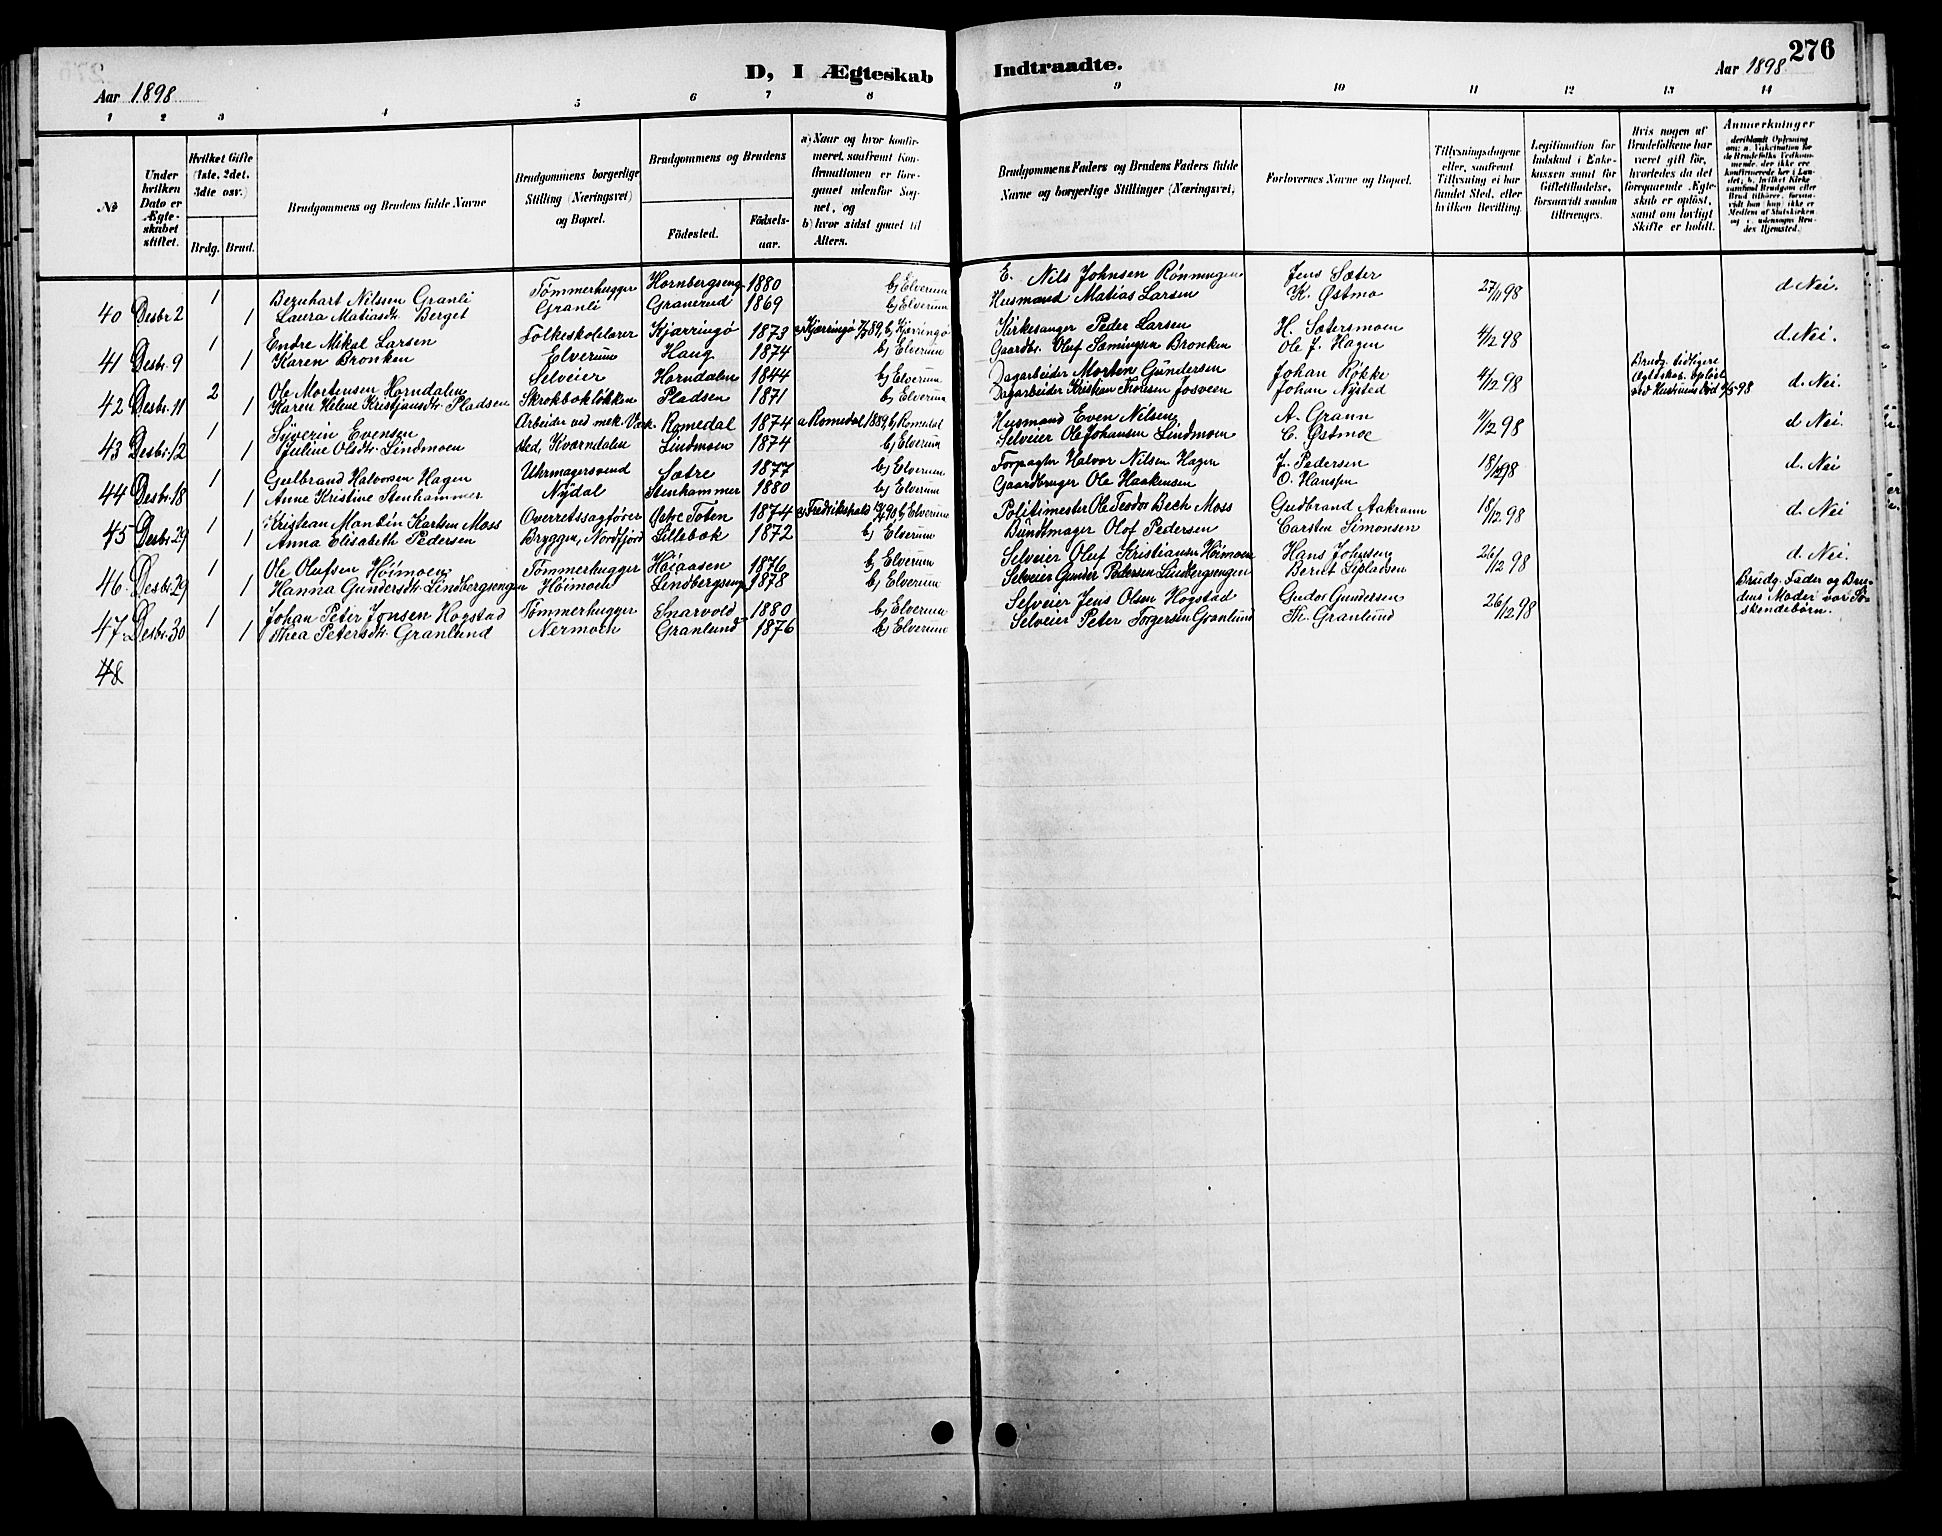 276
D, I Ægteskab Indtraadte.
Aar 1898
Aar 1898
1 2 3 4 5 6 7 8 9 10 11 12 13 14
№
Under hvilken Dato er Ægteskabet stiftet.
Hvilket Gifte (1ste, 2det, 3dte osv.)
Brdg. Brud.
Brudgommens og Brudens fulde Navne
Brudgommens borgerlige Stilling (Næringsvei) og Bopæl.
Brudgommens og Brudens
Födested. Födsels-aar.
a) Naar og hvor konfirmeret, saafremt Konfirmationen er foregaaet udenfor Sognet, og
b) hvor sidst gaaet til Alters.
Brudgommens Faders og Brudens Faders fulde Navne og borgerlige Stillinger (Næringsvei)
Forlovernes Navne og Bopæl.
Tillysningsdagene eller, saafremt Tillysning ei har fundet Sted, efter hvilken Bevilling.
Legitimation for Indskud i Enkekassen samt for Giftetilladelse, forsaavidt saadan tiltrænges.
Hvis nogen af Brudefolkene har været gift før, hvorledes da det foregaaende Ægteskab er opløst, samt om lovligt Skifte er holdt.
Anmærkninger
40 Desbr. 2 1 Bernhart Nilsen Granli Tømmerhugger Hornbergseng 1880 b) Elverum E. Nils Johnsen Rønningen Jens Sæter 27/11 98 d. Nei.
1 Laura Matiasdt. Berget Granli Granerud 1869 b) Elverum Husmand Matias Larsen K. Østmo
41 Desbr. 9 1 Endre Mikal Larsen Folkeskolelærer Kjærringø 1873 a) Kjærringø 7/7 89, b) Kjærringø Kirkesanger Peder Larsen H. Sætersmoen 4/12 98 d. Nei.
1 Karen Bronken Elverum Haug 1874 b) Elverum Gaardbr. Oluf Sæmingsen Bronken Ole J. Hagen
42 Desbr. 11 2 Ole Mortensen Horndalen Selveier Horndalen 1844 b) Elverum Dagarbeider Morten Gundersen Johan Røkke 4/12 98 Brudg. tidligere Ægteskab opløst ved Hustruens Død 4/5 98 d. Nei.
1 Karen Helene Kristjansdt. Pladsen Skrokbækløkken Pladsen 1871 b) Elverum Dagarbeider Kristian Thoresen Josveen Johan Nysted
43 Desbr. 12 1 Syverin Evensen Arbeider ved mek. Værk. Romedal 1874 a. Romedal 1889, b. Romedal Husmand Even Nilsen A. Grann 11/12 98 d. Nei.
1 Juline Olsdt. Lindmoen sted, Kværndalen Lindmoen 1874 b) Elverum Selveier Ole Johansen Lindmoen C. Østmoe
44 Desbr. 18 1 Gulbrand Halvorsen Hagen Uhrmagersvend Sætre 1877 b) Elverum Forpagter Halvor Nilsen Hagen J. Pedersen 18/12 98 d. Nei
1 Anne Kristine Stenhammer Nydal Stenhammer 1880 b) Elverum Gaardbruger Ole Haakensen O. Hansen
45 Desbr. 29 1 Kristean Mandin Karlsen Moss Overretssagfører Østre Toten 1874 a) Fredrikshald 90 b) Elverum Politimester Ole Teodor Bech Moss Gudbrand Aakrann 18/12 98 d. Nei
1 Anna Elisabeth Pedersen Bryggen, Nordfjord Lillebæk 1872 b) Elverum Bundtmager Olof Pedersen Carsten Simonsen
46 Desbr. 29 1 Ole Olufsen Høimoen Tømmerhugger Høiaasen 1876 b) Elverum Selveier Oluf Kristiansen Høimoen Hans Johnsen 26/12 98 d. Nei.
1 Hanna Gundersdt. Lindbergsengen Høimoen Lindbergseng 1878 b) Elverum Selveier Gunder Pedersen Lindbergsengen Bernt Lepladsen
47 Desbr. 30 1 Johan Peter Jonsen Hogstad Tømmerhugger Snarvold 1880 b) Elverum Selveier Jens Olsen Hogstad Gudor Gundersen 26/12 98 Brudg. Fader og Brudens Moder var Søskendebørn.
1 Thea Petersdt. Granlund Nermoen Granlund 1876 b) Elverum Selveier Peter Torgersen Granlund Th. Granlund
48